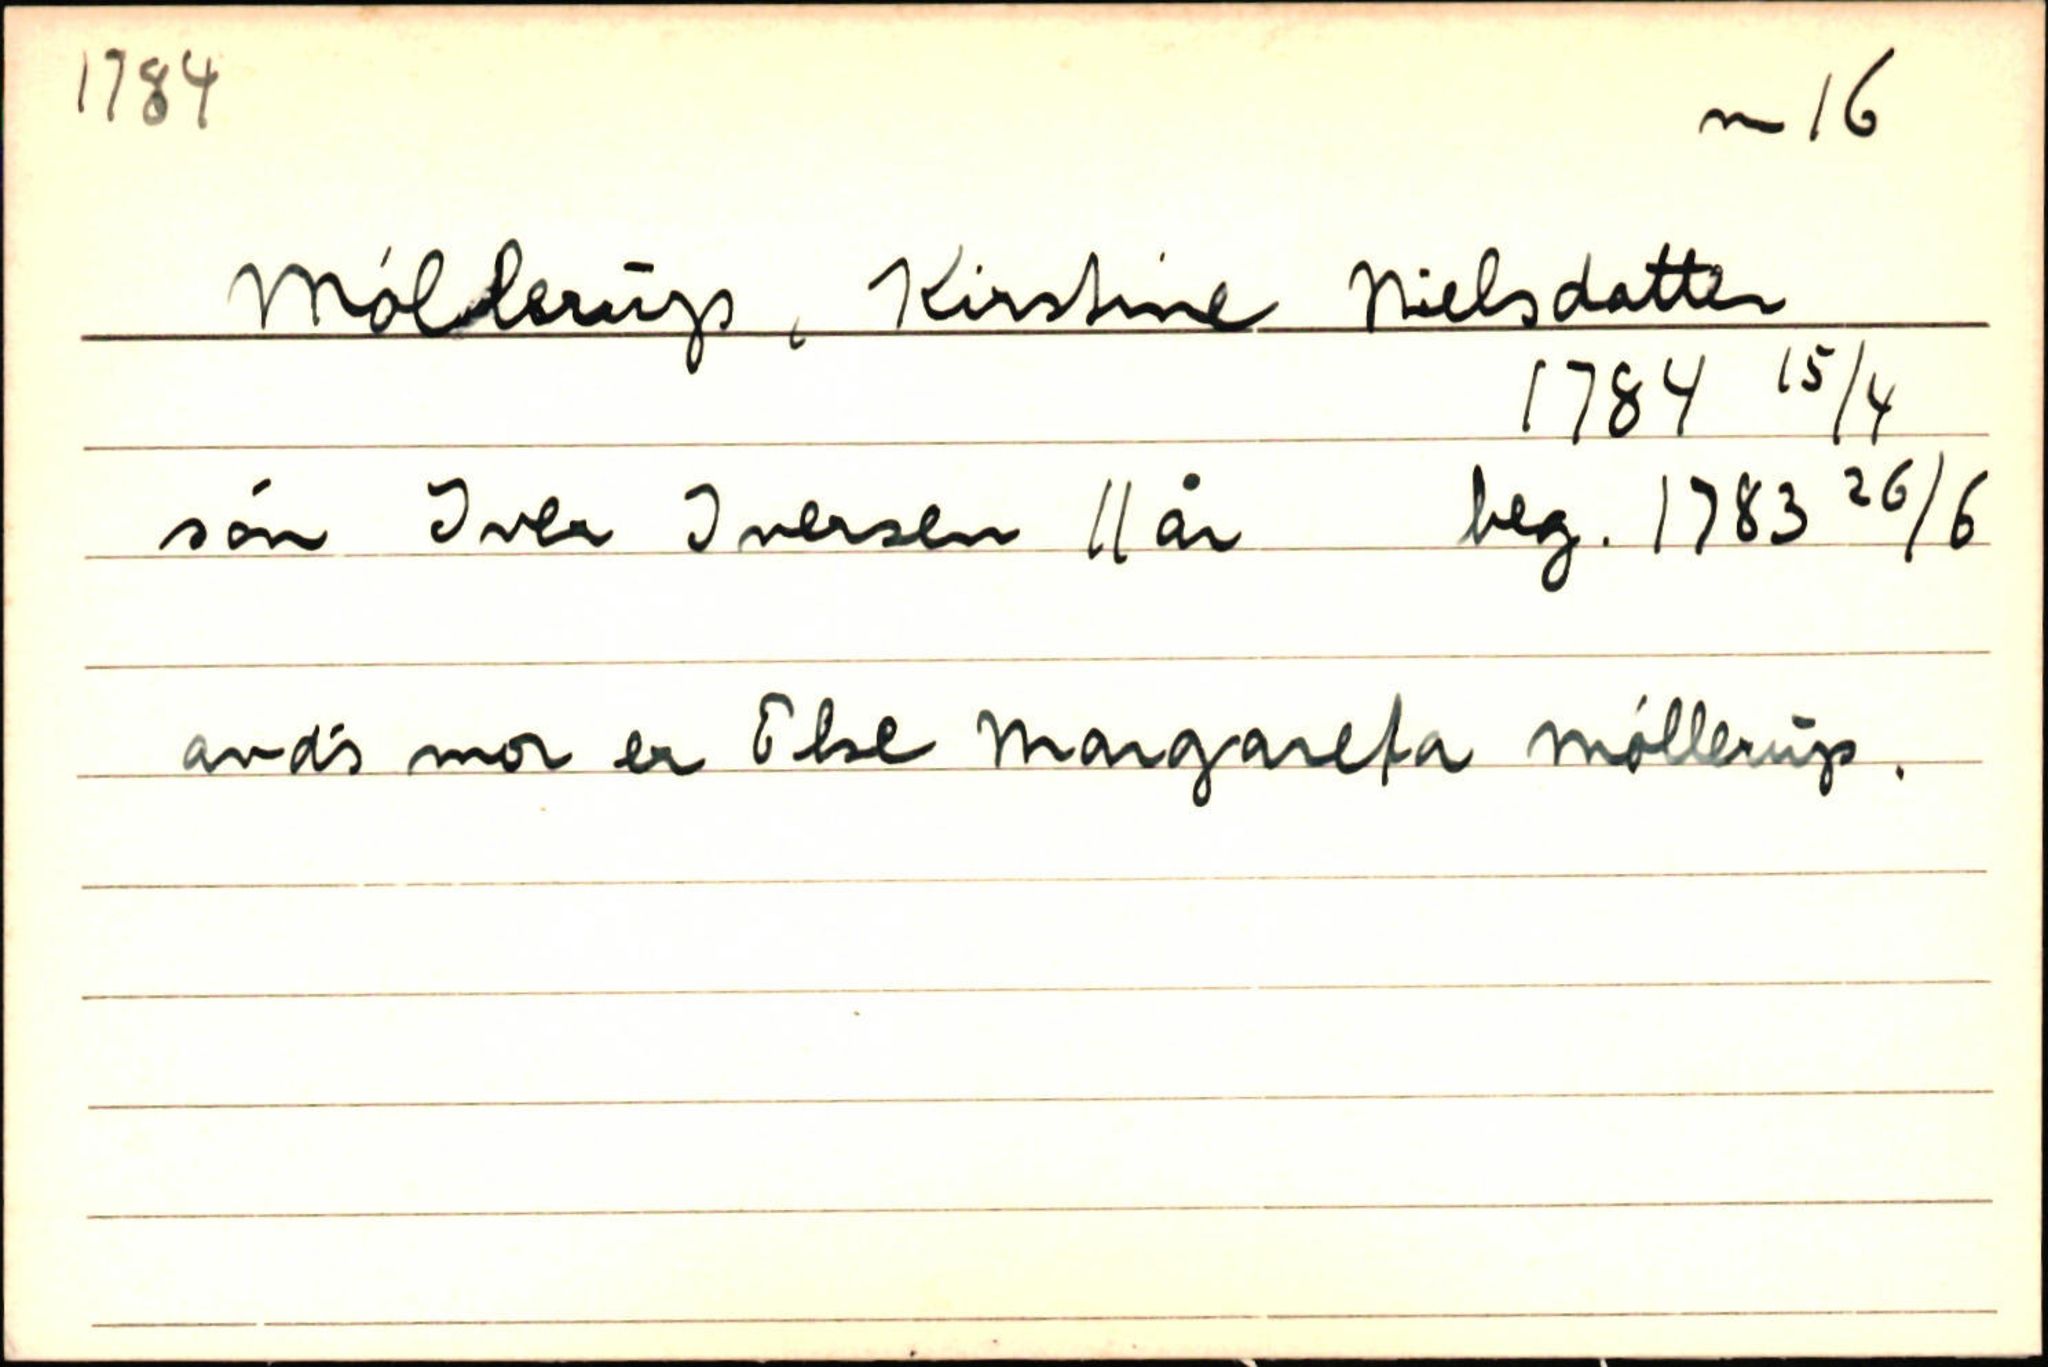 1784
m 16
Möllerup, Kirstine Nielsdatter
1784 15/4
sön Iver Iversen 11 år beg. 1783 26/6
avd's mor er Else Margareta Möllerup.